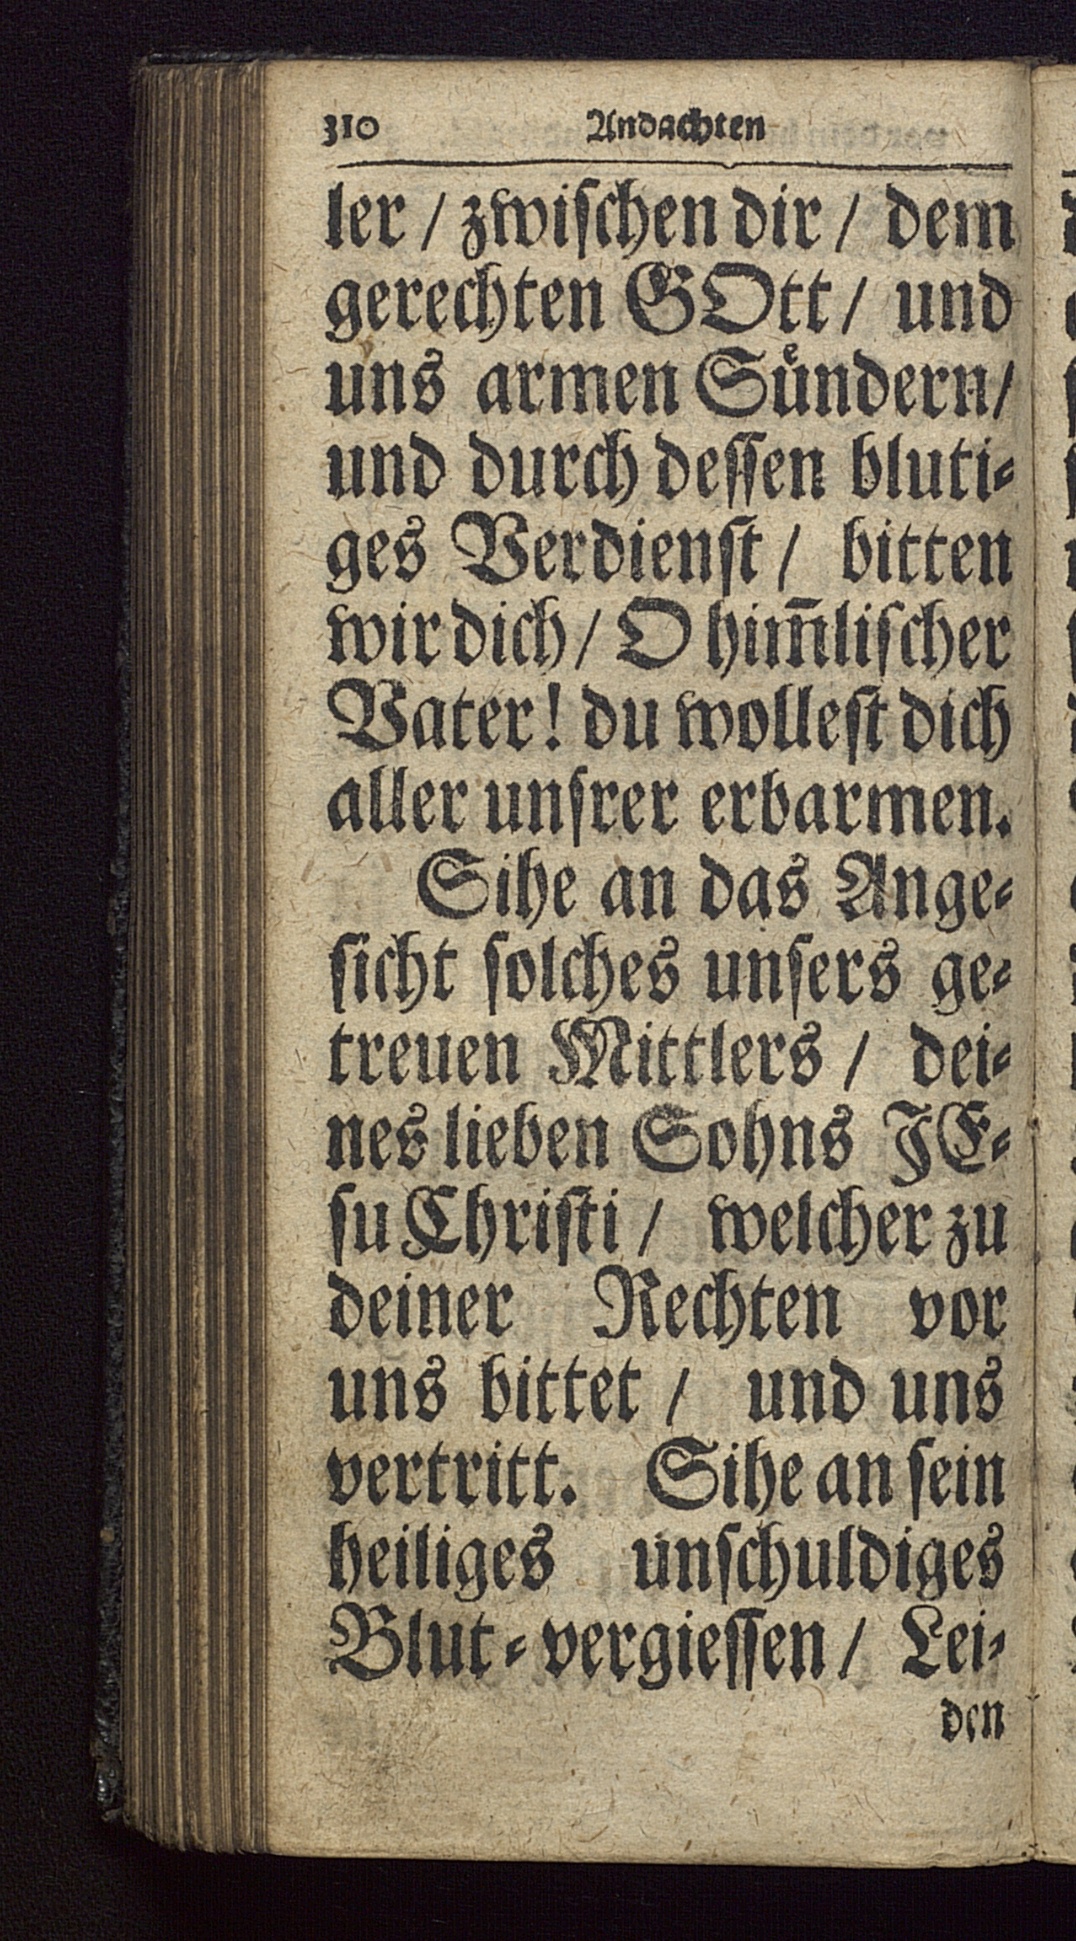 310 Andachten
ler / zwiſchen dir / dem
gerechten GOtt / und
uns armen Suͤndern /
und durch deſſen bluti⸗
ges Verdienſt / bitten
wir dich / O him̃liſcher
Vater! du wolleſt dich
aller unſrer erbarmen.
Sihe an das Ange⸗
ſicht ſolches unſers ge⸗
treuen Mittlers / dei⸗
nes lieben Sohns JE⸗
ſu Chriſti / welcher zu
deiner Rechten vor
uns bittet / und uns
vertritt. Sihe an ſein
heiliges unſchuldiges
Blut⸗vergieſſen / Lei⸗
den